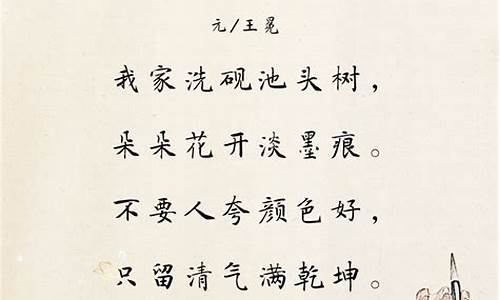 元/王冕
我家洗砚池头树，
朵朵花开淡墨痕。
不要人夸颜色好，
只留清气满乾坤。